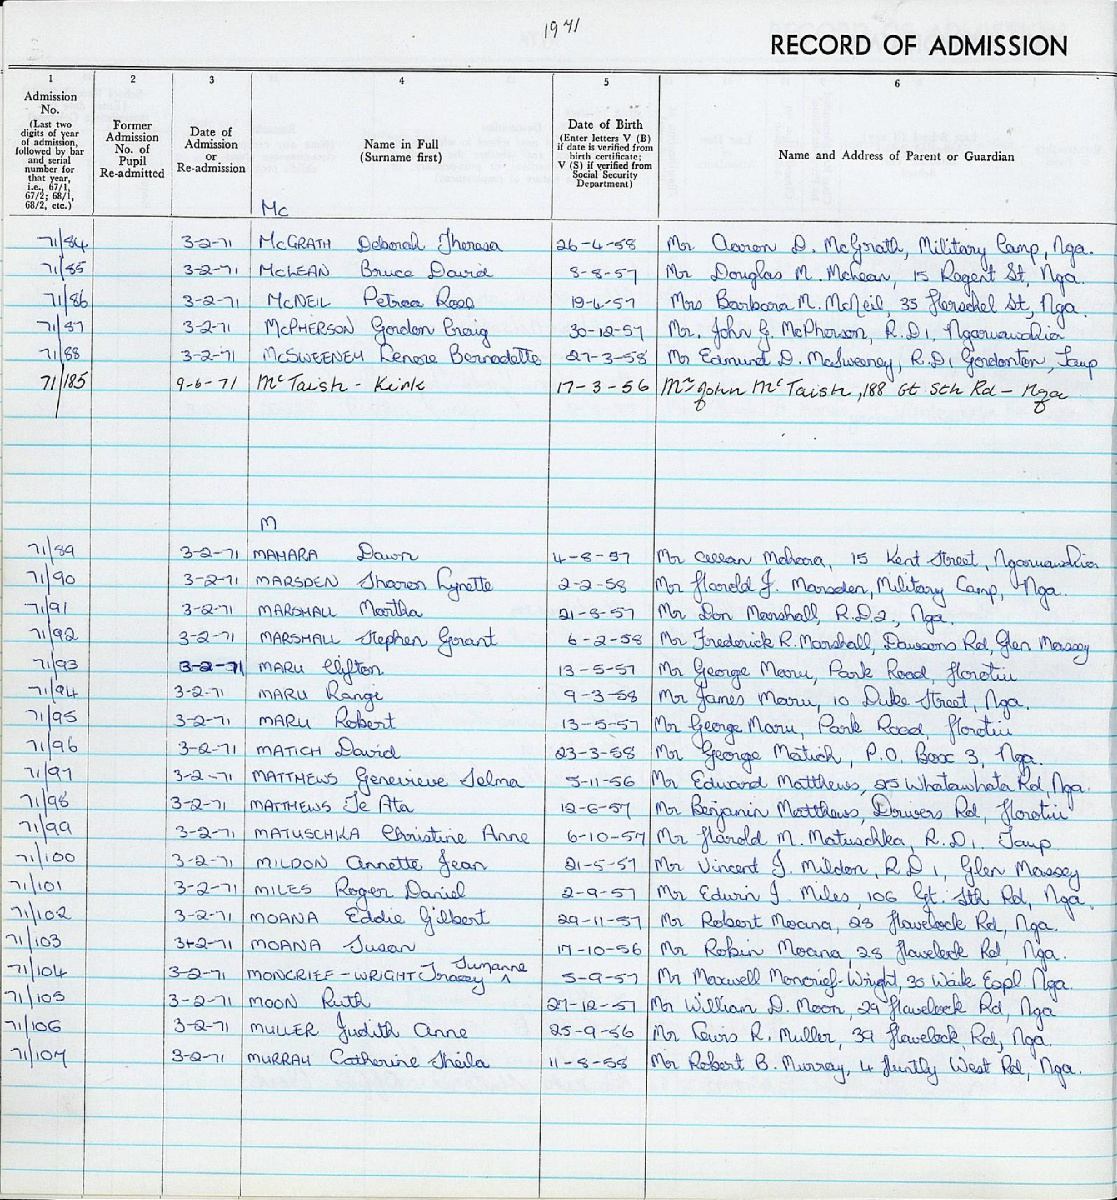 1941
RECORD OF ADMISSION
1 2 3 4 5 6
Admission No. (Last two digits of year of admission, followed by bar and serial number for that year, i.e., 67/1, 67/2; 68/1, 68/2, etc.)
Former Admission No. of Pupil Re-admitted
Date of Admission or Re-admission
Name in Full (Surname first)
Date of Birth (Enter letters V (B) if date is verified from birth certificate; V (S) if verified from Social Security Department)
Name and Address of Parent or Guardian
Mc
71/84 3-2-71 McGRATH Deborah Theresa 26-4-58 Mr Aaron D. McGrath, Military Camp, Nga.
71/85 3-2-71 McLEAN Bruce David 8-8-57 Mr Douglas M. McLean, 15 Regent St, Nga.
71/86 3-2-71 McNEIL Petrea Rose 19-6-57 Mrs Barbara M. McNeil, 35 Herschel St, Nga.
71/87 3-2-71 McPHERSON Gordon Craig 30-12-57 Mr. John G. McPherson, R.D.1, Ngaruawahia
71/88 3-2-71 McSWEENEY Lenore Bernadette 27-3-58 Mr Edmund D. McSweeney, R.D.1 Gordonton, Taup
71/185 9-6-71 McTaish - Kirk 17-3-56 Mr John McTaish, 188 Gt Sth Rd - Nga
M
71/89 3-2-71 MAHARA Dawn 4-8-57 Mr Mahara, 15 Kent Street, Ngaruawahia
71/90 3-2-71 MARSDEN Sharon Lynette 2-2-58 Mr Harold J. Marsden, Military Camp, Nga.
71/91 3-2-71 MARSHALL Martha 21-8-57 Mr Don Marshall, R.D.2, Nga.
71/92 3-2-71 MARSHALL Stephen Grant 6-2-58 Mr Frederick R. Marshall, Dawsons Rd, Glen Massey
71/93 3-2-71 MARU Clifton 13-5-57 Mr George Maru, Park Road, Horotiu
71/94 3-2-71 MARU Rangi 9-3-58 Mr James Maru, 10 Duke Street, Nga.
71/95 3-2-71 MARU Robert 13-5-57 Mr George Maru, Park Road, Horotiu
71/96 3-2-71 MATICH David 23-3-58 Mr George Matich, P.O. Box 3, Nga.
71/97 3-2-71 MATTHEWS Genevieve Selma 5-11-56 Mr Edward Matthews, 25 Whatawhata Rd, Nga.
71/98 3-2-71 MATTHEWS Te Ata 12-6-57 Mr Benjamin Matthews, Rd, Horotiu
71/99 3-2-71 MATUSCHKA Christine Anne 6-10-57 Mr Harold M. Matuschka, R.D.1. Taup
71/100 3-2-71 MILDON Annette Jean 21-5-57 Mr Vincent J. Mildon, R.D.1, Glen Massey
71/101 3-2-71 MILES Roger Daniel 2-9-57 Mr Edwin J. Miles, 106 Gt. Sth Rd, Nga.
71/102 3-2-71 MOANA Eddie Gilbert 29-11-57 Mr Robert Moana, 28 Havelock Rd, Nga.
71/103 3-2-71 MOANA Susan 17-10-56 Mr Robin Moana, 28 Havelock Rd, Nga.
71/104 3-2-71 MONCRIEF-WRIGHT Tracey Suzanne 5-9-57 Mr Maxwell Moncrief-Wright, 30 Waik Espl. Nga.
71/105 3-2-71 MOON Ruth 27-12-57 Mr William D. Moon, 29 Havelock Rd, Nga
71/106 3-2-71 MULLER Judith Anne 25-9-56 Mr Lewis R. Muller, 39 Havelock Rd, Nga.
71/107 3-2-71 MURRAY Catherine Sheila 11-8-58 Mr Robert B. Murray, 4 Huntly West Rd, Nga.